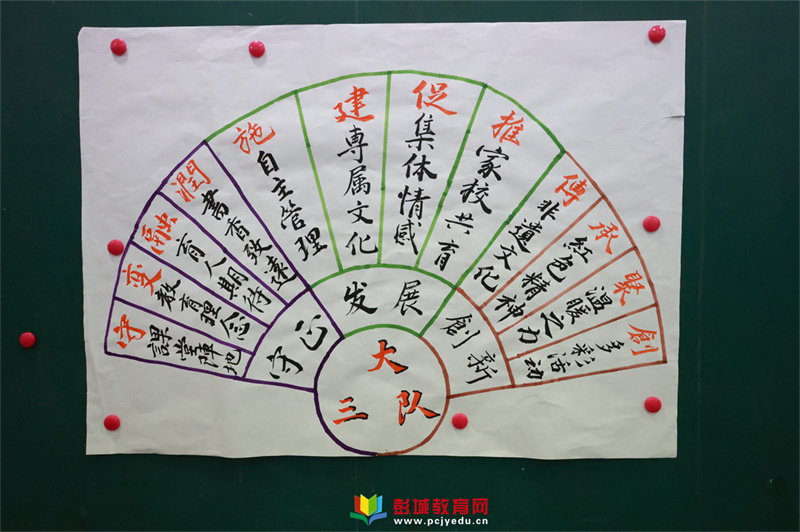 守課堂陣地
变教育理念
融育人期待
潤書香致遠
施自主管理
建專属文化
促集体情感
推家校共育
傳非遺文化
承紅色精神
聚温暖之力
創多彩活动
守正
发展
創新
大
三队
彭城教育网
www.pcjyedu.cn